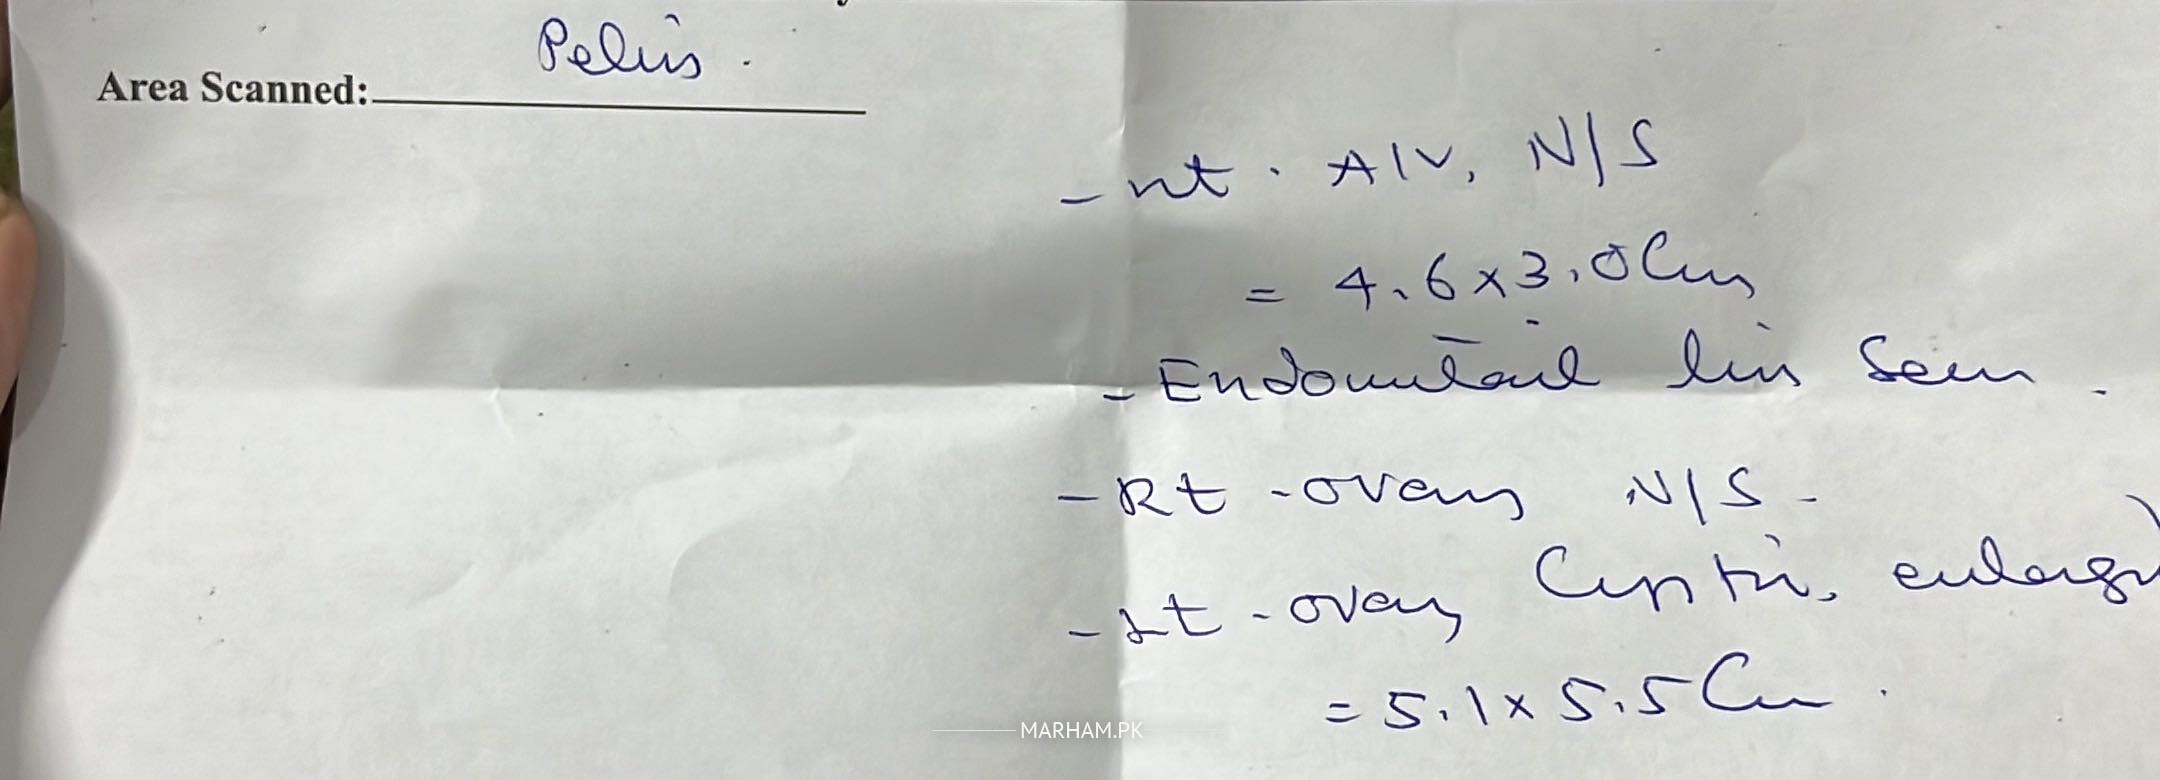 Pelvis.
Area Scanned:
- ut. A/V, N/S
= 4.6x3.0cm
- Endometrial line seen.
- Rt - ovary N/S -
- Lt - ovary Cystic, enlarged
= 5.1x5.5cm.
MARHAM.PK